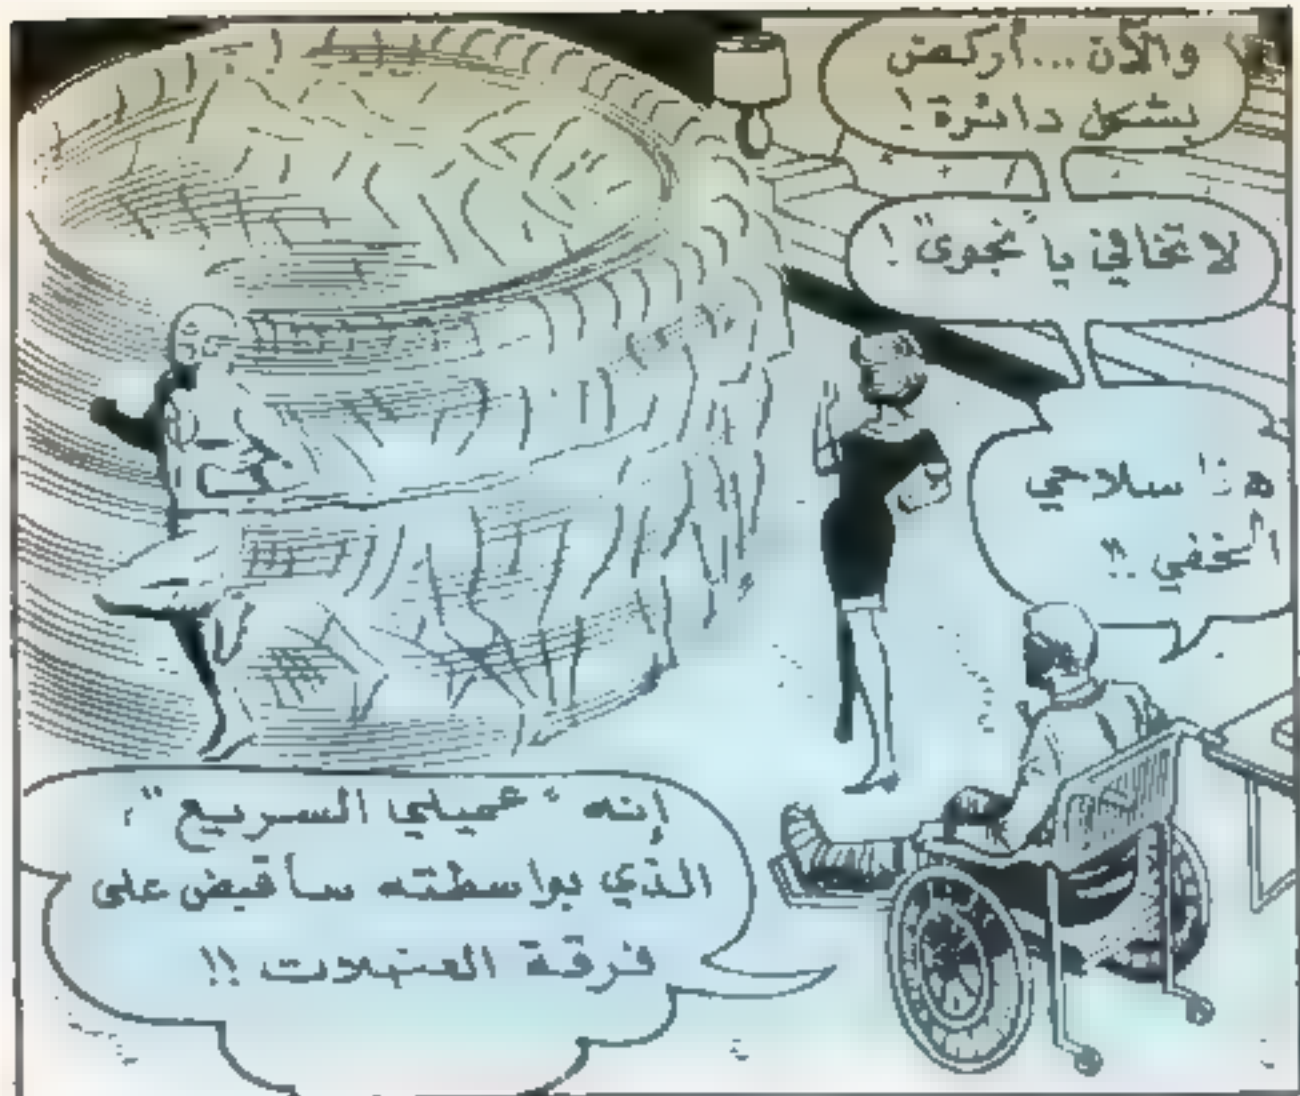 والآن...أركض
بشكل دائرة !
لا تخافي يا "نجوى" !
هذا سلاحي
الخفي !!
إنه "عميلي السريع"،
الذي بواسطته سأقبض على
فرقة العضلات !!